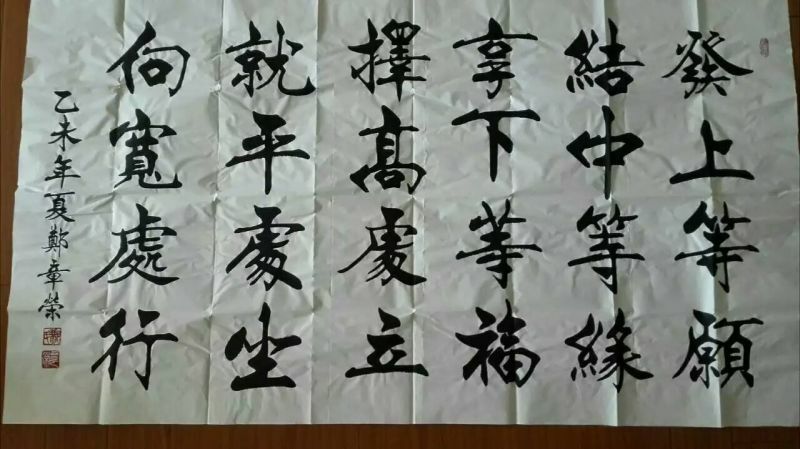 發上等願
結中等緣
享下等福
擇高處立
就平處坐
向寬處行
乙未年夏鄭章榮